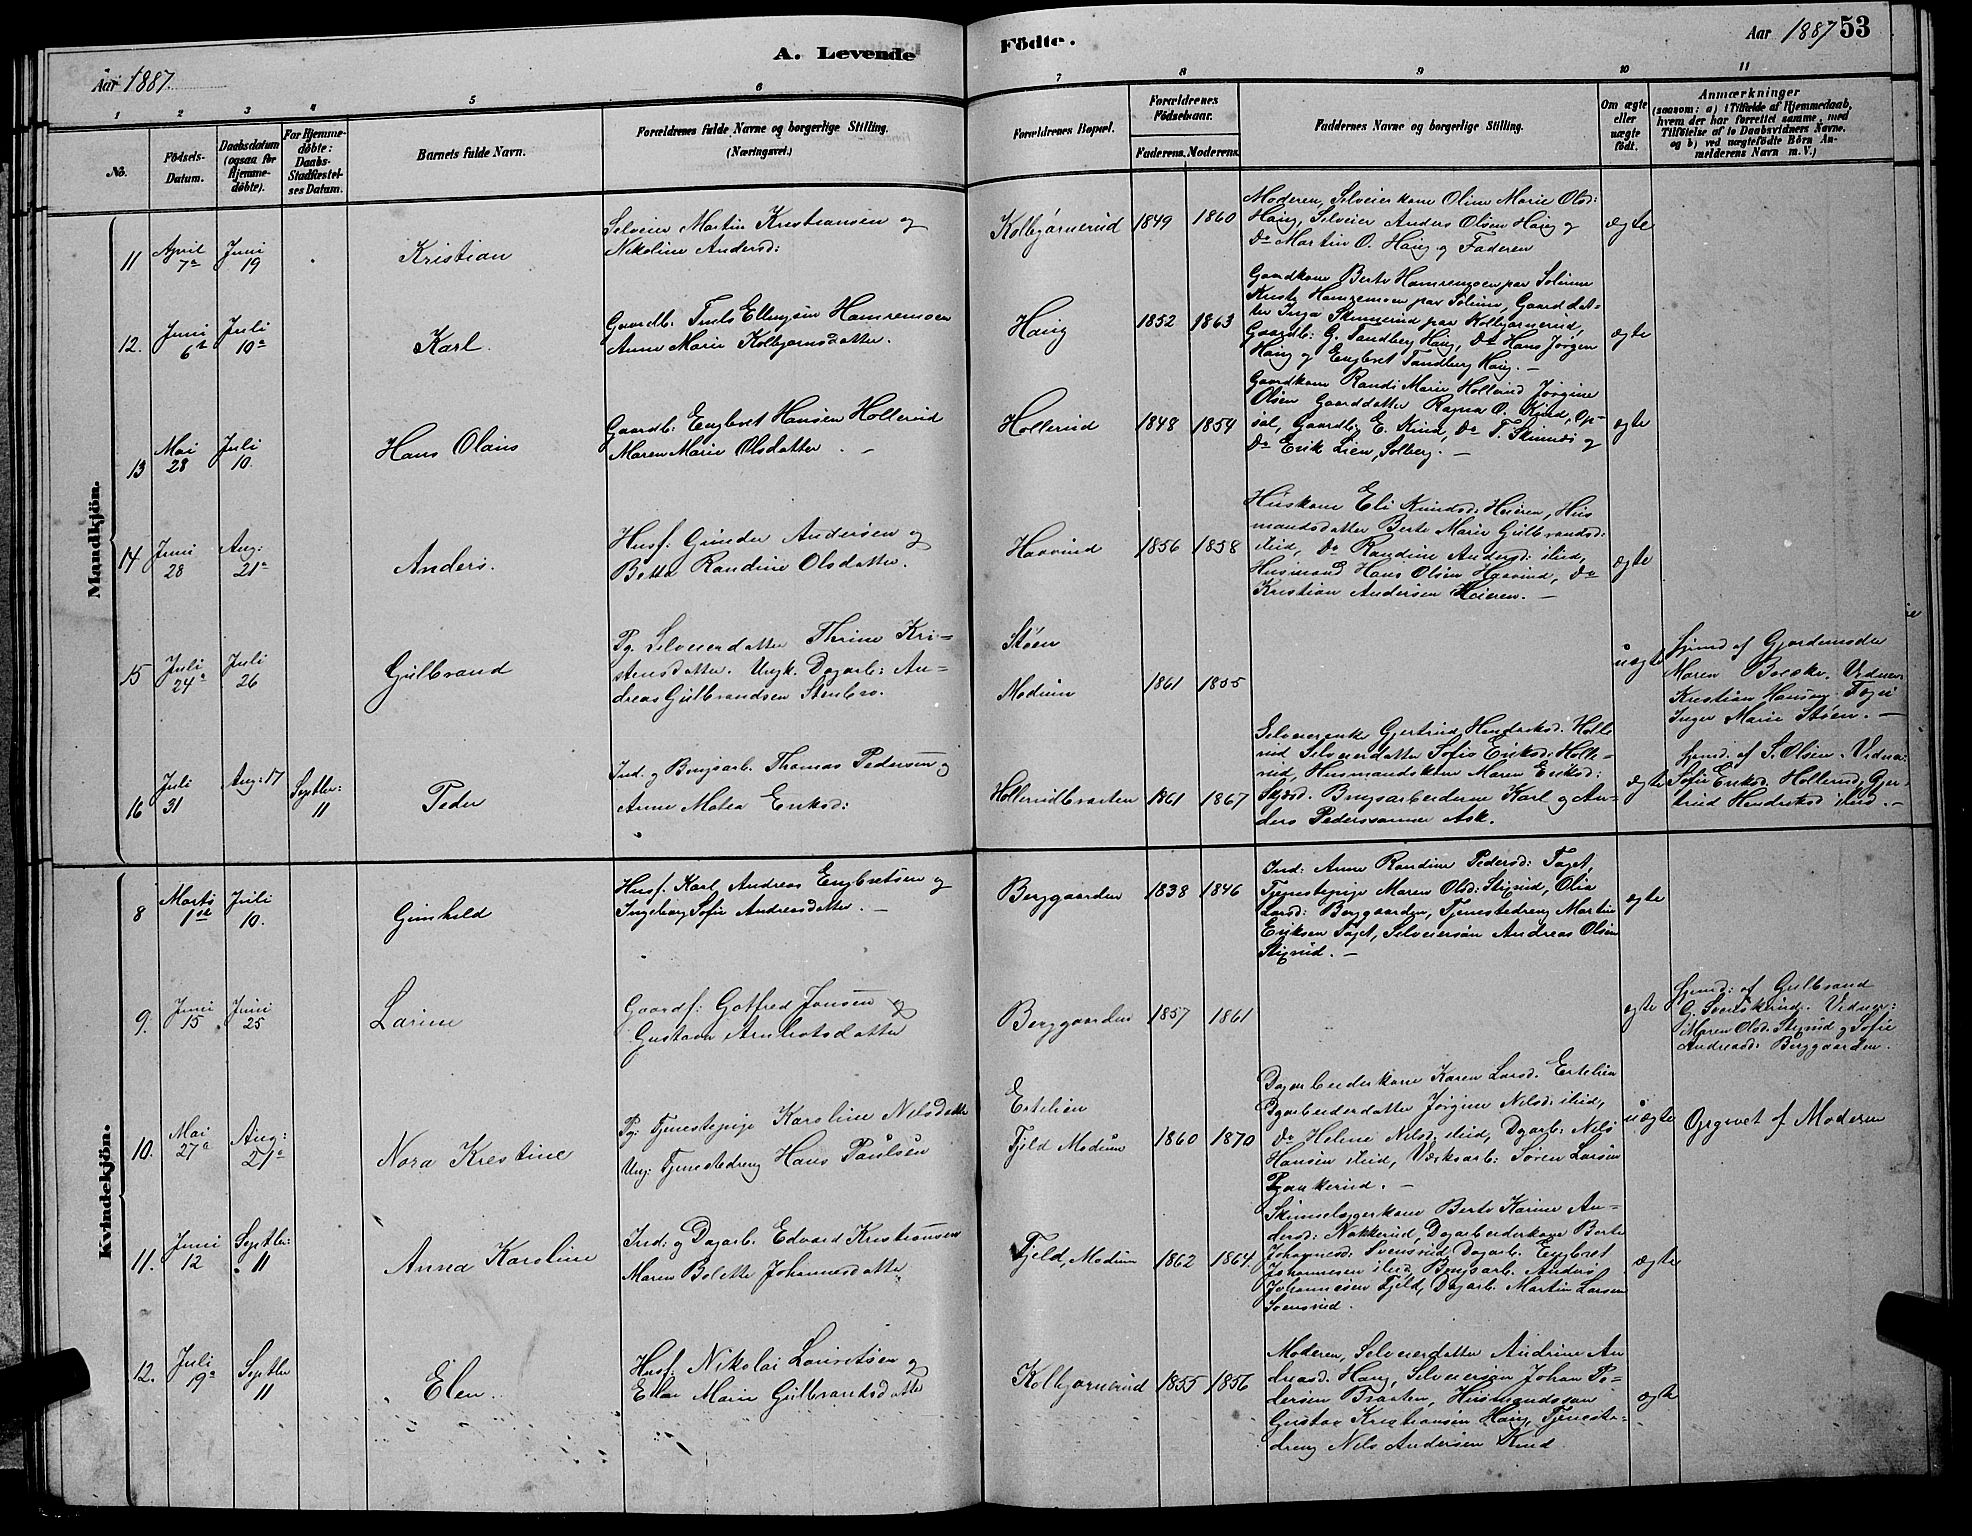 Aar 1887.
A. Levende
Födte.
Aar 1887 53
1 2 3 4 5 6 7 8 9 10 11
No.
Födsels-
Datum.
Daabsdatum
(ogsaa for
Hjemme-
döbte).
For Hjemme-
döbte:
Daabs-
Stadfæstel-
ses Datum.
Barnets fulde Navn.
Forældrenes fulde Navne og borgerlige Stilling.
(Næringsvei.)
Forældrenes Bopæl.
Forældrenes
Födselsaar.
Faderens. Moderens.
Faddernes Navne og borgerlige Stilling.
Om ægte
eller
uægte
födt.
Anmærkninger
(saasom: a) i Tilfælde af Hjemmedaab,
hvem der har forrettet samme, med
Tilföielse af to Daabsvidners Navne.
og b) ved uægtefödte Börn An-
melderens Navn m. V.)
Mandkjön.
11 April 7de Juni 19 Kristian
Selveier Martin Kristiansen og
Nikoline Andersd:
Kolbjørnerud 1849 1860
Moderen, Selveierkone Oline Marie Olsd:
Haug, Selveier Anders Olsen Haug og
Do Martin O. Haug og Faderen
ægte
12. Juni 6te Juli 10de Karl.
Gaardb. Truls Ellingsen Hamremoen
Anne Marie Kolbjørnsdatter.
Haug 1852 1863
Gaardkone Berte Hamremoen paa Solum
Hamremoen paa Solum, Gaarddat-
ter Inga Skinnerud paa Kolbjørnerud,
Gaardb: G. Tandberg Haug, Do Hans Jørgen
Haug og Engbret Tandberg Haug. —
ægte
13 Mai 28 Juli 10. Hans Olaus
Gaardb: Engbret Hansen Hollerud
Maren Marie Olsdatter. —
Hollerud 1848 1854
Gaardkone Randi Marie Hollerud Jørgine
Olsen Gaarddatter Ragna O. Rud, Op-
sal, Gaardb. E. Rud, Do T. Skinnes og
Do Erik Lien, Solberg. —
ægte
14 Juni 28 Aug: 21de Anders.
Husf. Gunder Andersen og
Berthe Randine Olsdatter.
Haavrud 1856 1858
Huskone Eli Knudsd: Heieren, Hus
mandsdatter Berte Marie Gulbrandsd:
ibid, Do Randine Andersd: ibid,
Husmand Hans Olsen Haavrud, Do
Kristian Andersen Heieren. —
ægte
15 Juli 24de Juli 26 Gulbrand
Pg. Selveierdatter Thrine Kri-
stensdatter. Ungk. Dagarb: An-
dreas Gulbrandsen Stenbro.
Støen
Modum 1861 1855
uægte
hjmd af Gjordemoder
Maren Vidner
Kristian Hansen
Inger Marie Støen. —
16 Juli 31 Aug: 17 Septbr: 11 Peder
Ind. og Brugsarb. Thomas Pedersen og
Anne Matea Eriksd:
Hollerudbraaten 1861 1867
Selveierenke Gjertrud Hendriksd. Holle
rud Selveierdatter Sofie Eriksd: Holle-
rud, Husmandskone Maren Eriksd:
Brugsarbeiderne Karl og An-
ders Pederssønner Ask.
ægte
hjmd. af S. Olsen. Vidner
Sofie Eriksd. Hollerud, Gjer-
trud Hendriksd ibid. —
Kvindekjön.
8 Marts 1ste Juli 10. Gunhild
Husf. Karl Andreas Engbretsen og
Ingeborg Sofie Andreasdatter. —
Berggaarden 1838 1846
Ind: Anne Randine Pedersd: Foget,
Tjenestepige Maren Olsd: Stixrud, Olia
Larsd: Berggaarden, Tjenestedreng Martin
Eriksen Foget, Selveiersøn Andreas Olsen
Stixrud. —
ægte
9. Juni 15 Juni 25 Larine
Gaardf: Gotfred Jonsen og
Gustava Arnhotsdatter
Berggaarden 1857 1861
ægte
hjmd: af Gulbrand
G. Vidner:
Maren Olsd. Stixrud og Sofie
Andreasd: Berggaarden.
10. Mai 27de Aug: 21de Nora Kristine
Pg: Tjenestepige Karoline Nilsdatter
Ung. Tjenestedreng Hans Paulsen
Ertelien
Fjeld Modum 1860 1870
Dagarbeiderkone Karen Larsd. Ertelien
Dgarbeiderdatter Jørgine Nilsd: ibid,
Do Helene Nilsd. ibid, Dgarb. Nils
Hansen ibid, Værksarb: Søren Larsen
uægte
Opgivet af Moderen
11. Juni 12 Septbr: 11 Anna Karoline
Ind: og Dagarb. Edvard Kristiansen
Maren Bolette Johannesdatter
Fjeld, Modum 1862 1864.
Berte Karine An-
dersd: Nakkerud, Dagarbeiderkone Berte
Johannesd: Svensrud, Dagarb. Engbret
Johannesen ibid, Brugsarb. Anders
Johannesen Fjeld, Dagarb. Martin Larsen
Svensrud.
ægte
12. Juli 19de Septbr 11 Elen.
Husf. Nikolai Lauritsen og
Elen Marie Gulbrandsdatter
Kolbjørnerud 1855 1856
Moderen, Selveierdatter Andrine An
dreasd. Haug, Selveiersøn Johan Pe-
dersen Braaten, Husmandssøn
Gustav Kristiansen Haug, Tjeneste-
dreng Nils Andersen Rud
ægte